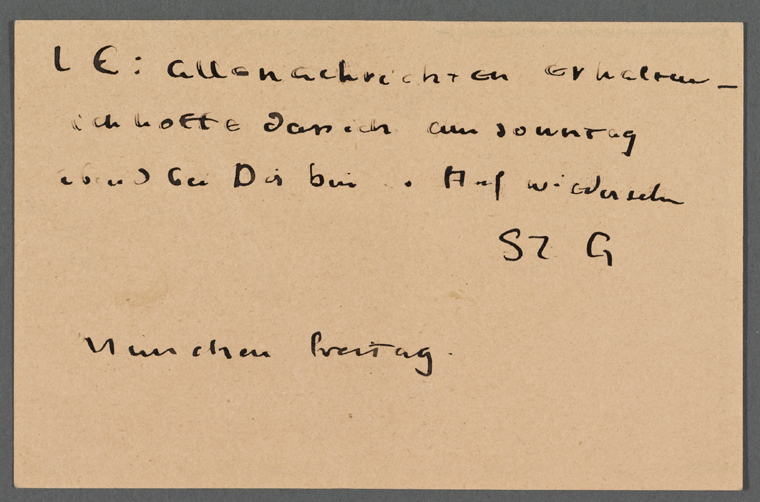 L E: alle nachrichten erhalten –
ich hoffe dass ich am sonntag
abend bei Dir bin . Auf wiedersehn
ST G
München freitag.